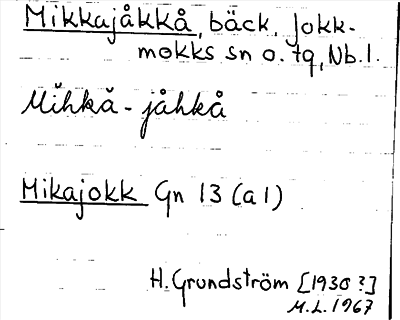 Mikkajåkkå, bäck, Jokk-
mokks sn o. tq, Nb. l.
Mĭhkă-jåhkå
Mikajokk Gn 13 (a1)
H. Grundström [1930?]
M.L. 1967